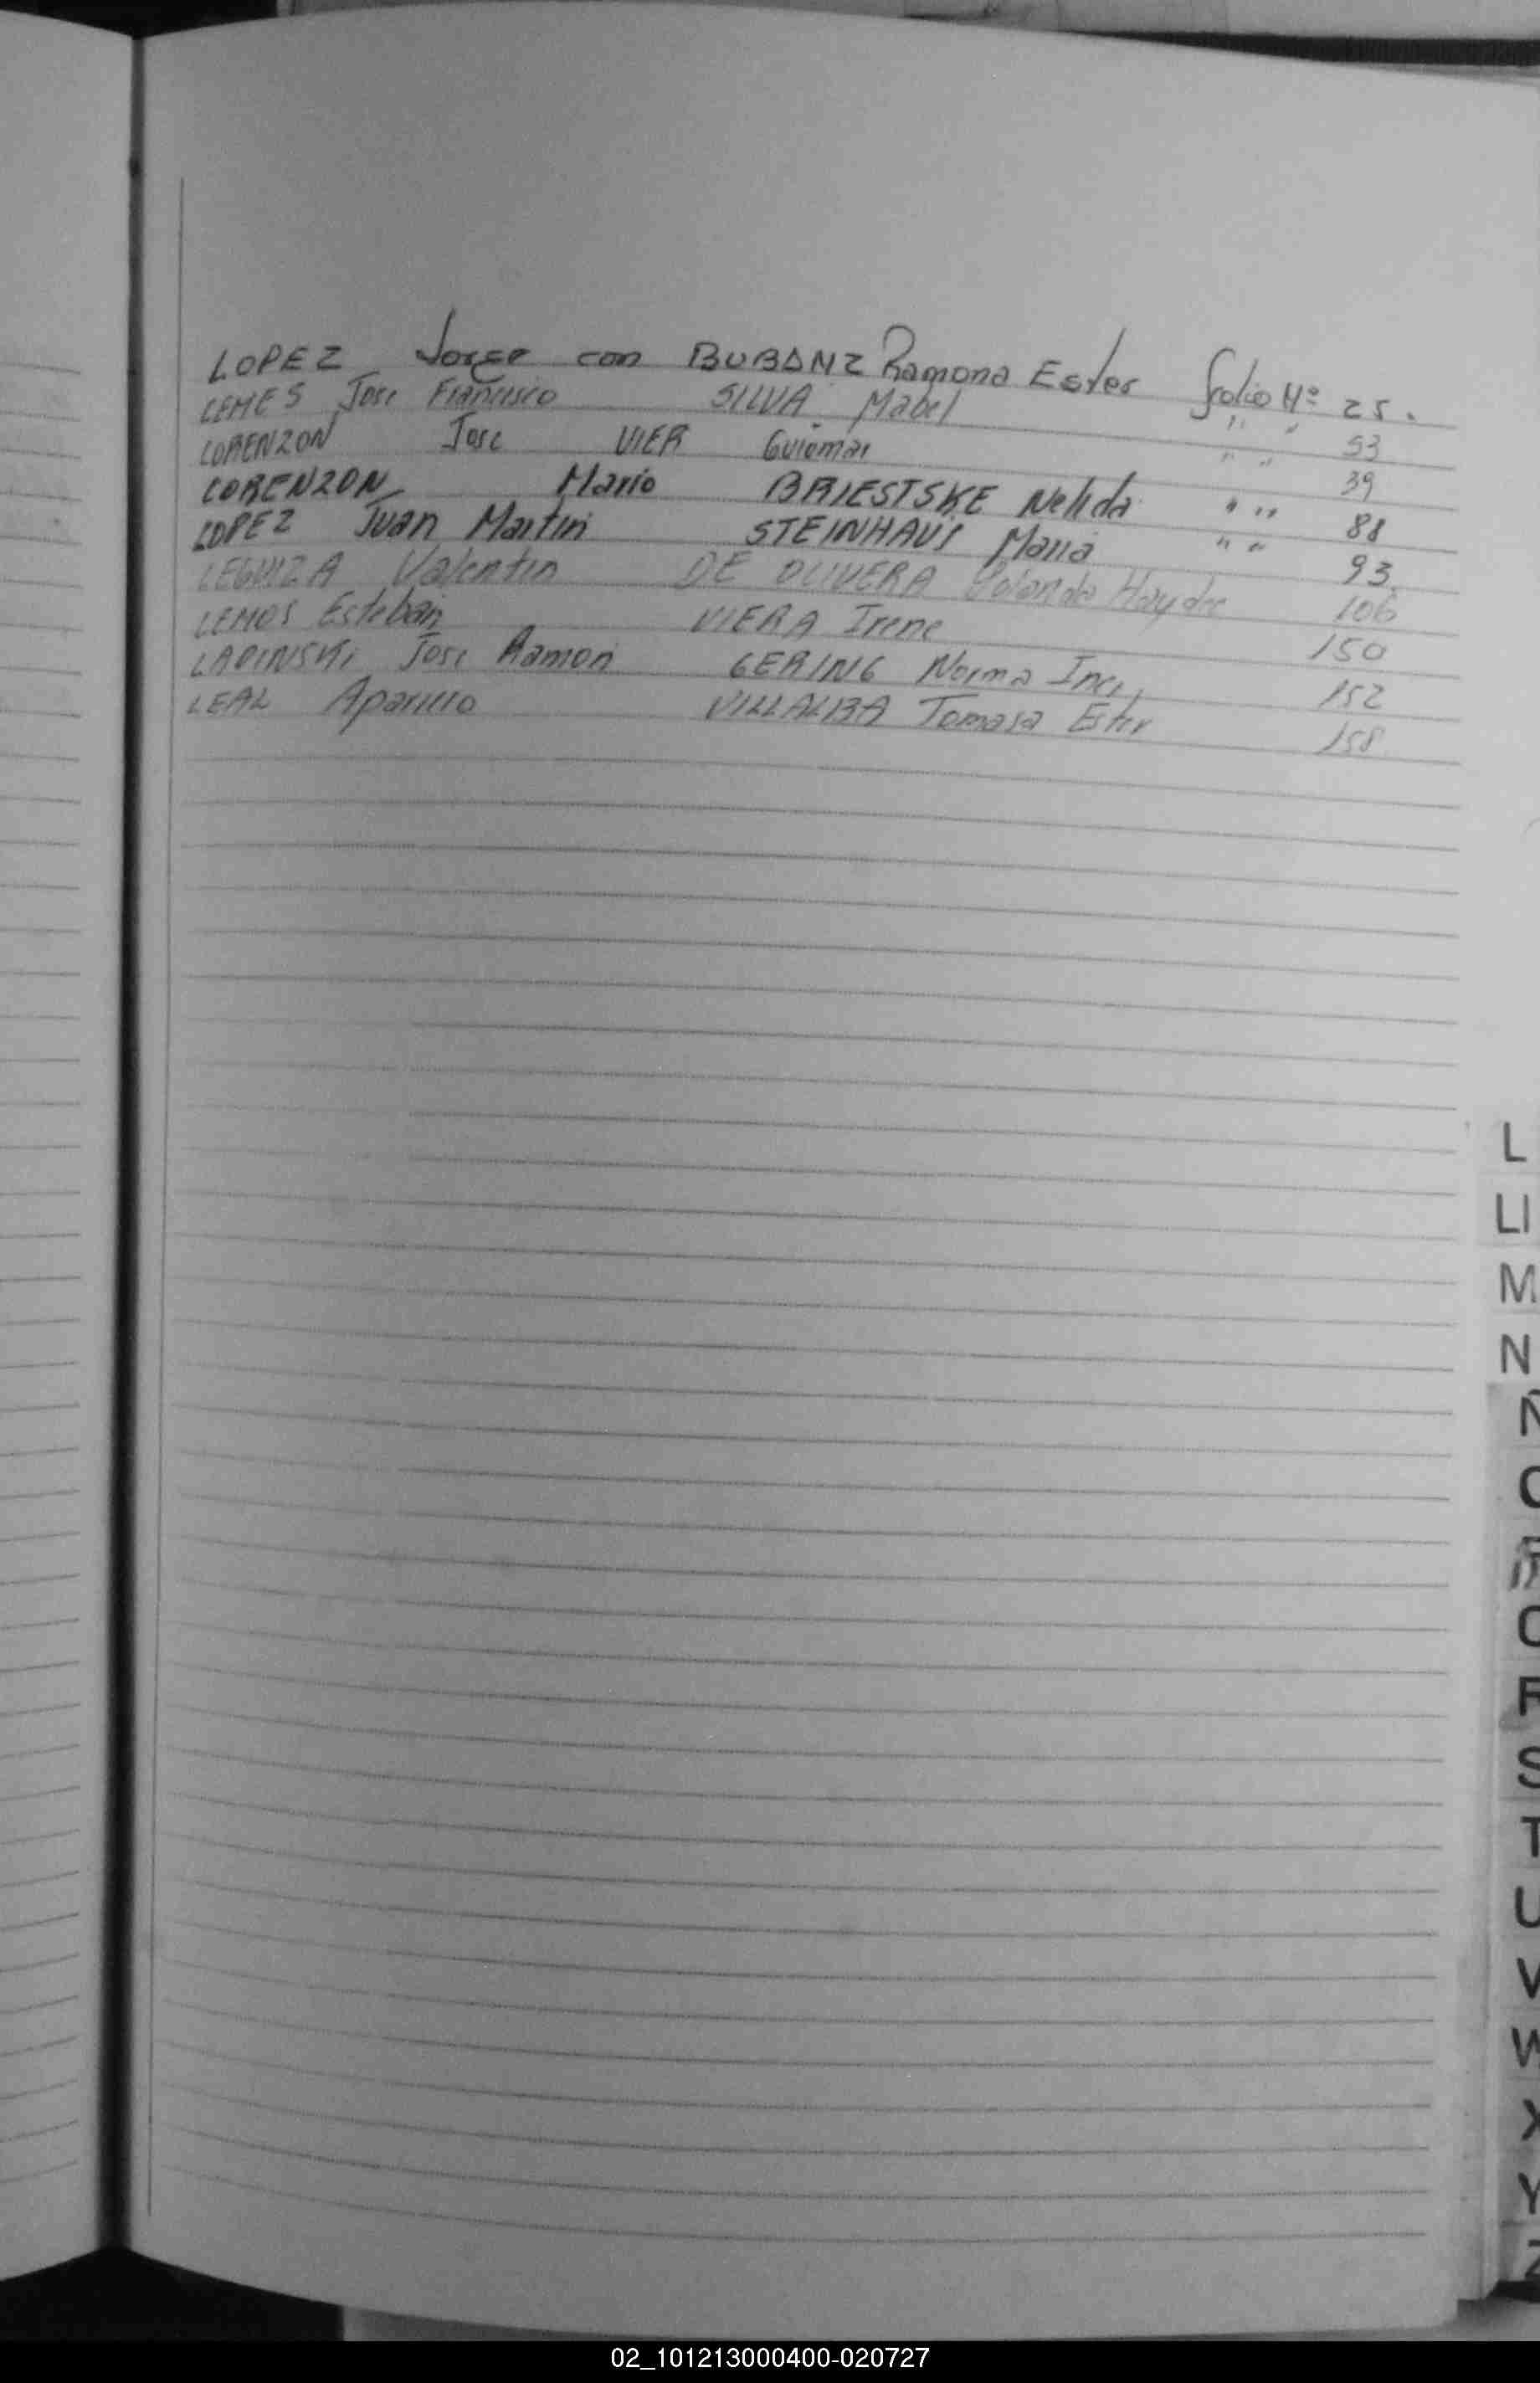 LOPEZ Jorge con BUBANZ Ramona Ester folio Nº 25.
LEMES Jose Francisco SILVA Mabel " " 53
LORENZON Jose VIER Guiomar " " 39
LORENZON Mario BRIESTSKE Nelida " " 88
LOPEZ Juan Martin STEINHAUS Maria " " 93
LEGUIZA Valentin DE OLIVERA Yolanda Haydee 106
LEMOS Esteban VIERA Irene 150
LAPINSKI Jose Ramon GERING Norma 152
LEAL Aparicio VILLALBA Tomasa Ester 158
L
Ll
M
N
Ñ
S
T
U
V
W
X
Y
Z
02_101213000400-020727